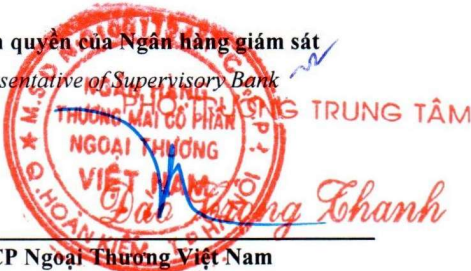 quyền của Ngân hàng giám sát
sentative of Supervisory Bank
PHÓ TRƯỞNG TRUNG TÂM
NGÂN HÀNG
THƯƠNG MẠI CỔ PHẦN
NGOẠI THƯƠNG
VIỆT NAM
Q.HOÀN KIẾM
Đào Thanh
CP Ngoại Thương Việt Nam